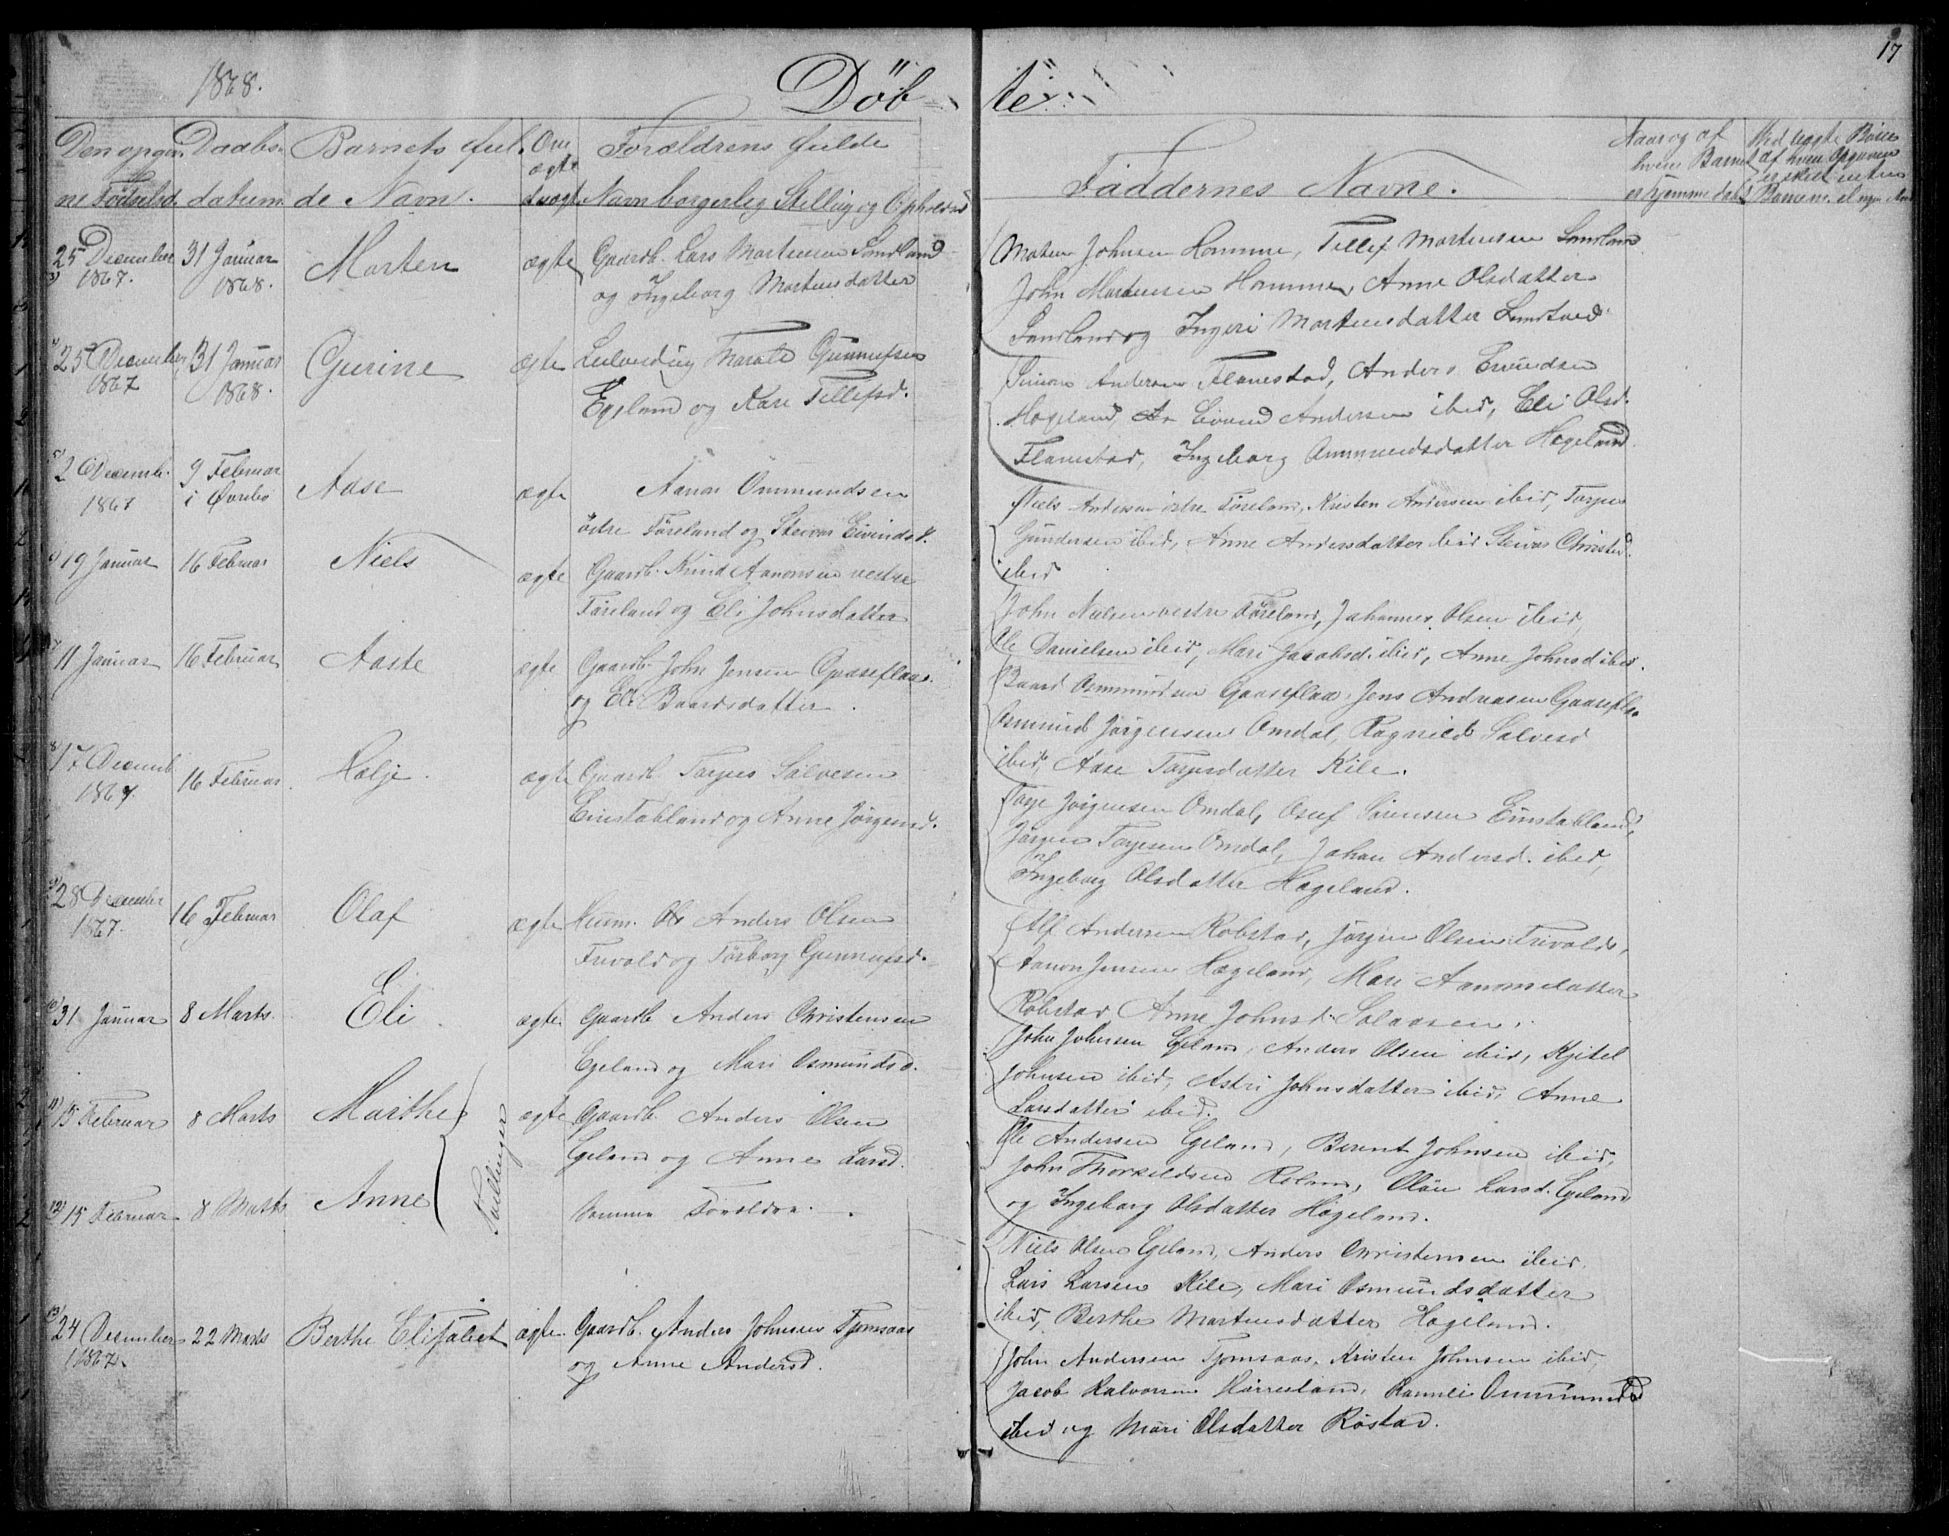 17
1868.
Döbte
Den opgivne Fødselsd. Daabsdatum Barnets fulde Navn. Om ægte Forældrens fulde Navn borgerlig Stilling og Ophold
Faddernes Navne.
Naar og af hven Barnet er hjemmedøbt
25 December 1867. 31 Januar 1868. Morten ægte Gaardb. Lars Martensen Sandland
og Ingeborg Martensdatter
Johnsen Homme, Tellef Martensen Sandland
John Martensen Homme, Anne Olsdatter
Sandland og Ingeri Martensdatter
25 December 1867 31 Januar 1868. Gurine ægte Gunnufsen
Egeland og Kari Tellefsd.
Simon Andersen Flanestad, Anders Evindsen
Hægeland, Eivind Andersen ibid, Eli Olsd.
Flanestad, Ingeborg Ommundsdatter Hægeland
2 Decemb. 1867 9 Februar i Øvrebø Aase ægte Aanon Ommundsen
østre Føreland og Steinor Eivindsd.
Niels Andersen østre Føreland, Kristen Andersen ibid, Tarjus
Gundersen ibid, Anne Andersdatter ibid
ibid
19 Januar 16 Februar Niels ægte Gaardb. Knud Aanonsen vestre
Føreland og Eli Johnsdatter
John Nielsen vestre Føreland, Johannes Olsen ibid,
Ole Danielsen ibid, Mari Jacobsd. ibid, Anne Johnsd ibid.
11 Januar 16 Februar Aaste ægte Gaardb. John Jensen Gaaseflaa
og Eli Baardsdatter.
Baard Osmundsen Gaaseflaa, Jens Andreasen Gaasefla
Osmund Jørgensen Omdal, Ragnild Salvesd
ibid, Aase Tarjesdatter Kile.
17 Decemb 1867. 16 Februar. Holje. ægte Gaardb. Tarjus Salvesen
Einstabland og Anne Jørgensd.
Tarje Jørgensen Omdal, Osuf Sørensen Einstabland,
Jørgen Tarjesen Omdal, Johan Andersd. ibid,
Ingeborg Olsdatter Hægeland.
28 December 1867. 16 Februar Olaf ægte Huusm. Anders Olsen
Trivold og Tørborg Gunnufsd.
Alf Andersen Robstad, Jørgen Olsen Trivold,
Aanon Jensen Hægeland, Mari Aanonsdatter
Robstad Anne Johnsd. Solaasen.
31 Januar 8 Marts. Eli. ægte Gaardb Anders Christensen
Egeland og Mari Osmundsd.
John Johnsen Egeland, Anders Olsen ibid, Kjitel
Johnsen ibid, Astri Johnsdatter ibid, Anne
Larsdatter ibid.
15 Februar 8 Marts Marthe ægte Gaardb. Anders Olsen
Egeland og Anne Larsd.
Tvillinger
Ole Andersen Egeland, Berent Johnsen ibid,
John Thorkildsen Larsd. Egeland
og Ingeborg Olsdatter Hægeland.
15 Februar 8 Marts Anne Samme Forældre.
Niels Olsen Egeland, Anders Christensen ibid,
Lars Larsen Kile, Mari Osmundsdatter
ibid, Berthe Martensdatter Hægeland.
24 December 1867. 22 Marts Berthe Elisabet ægte Gaardb. Anders Johnsen Tjomsaas
og Anne Andersd.
John Andersen Tjomsaas, Kristen Johnsen ibid,
Jacob Halvorsen
ibid og Mari Olsdatter Røstad.